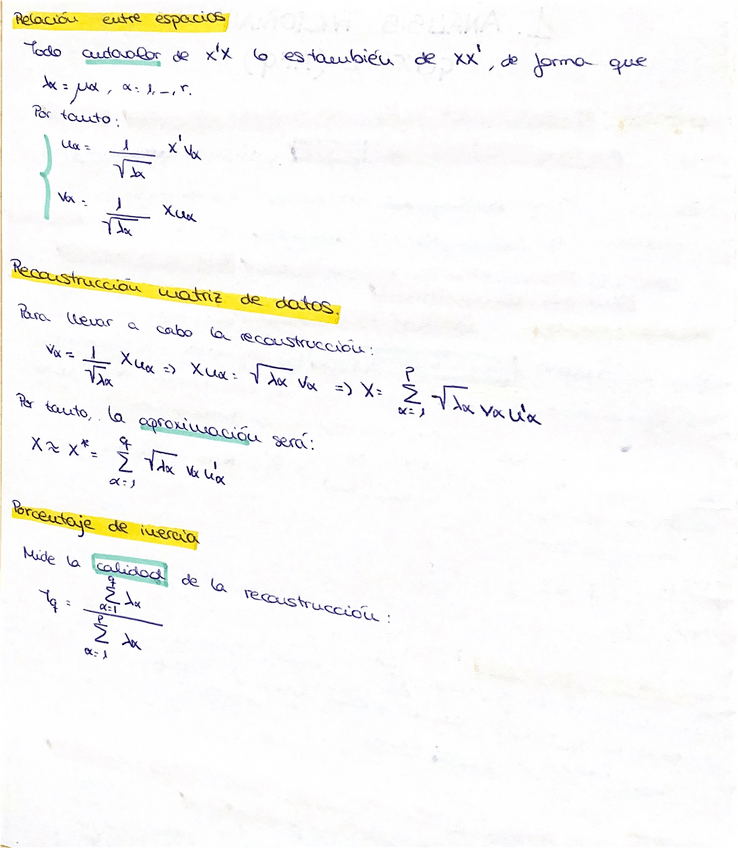 Relación entre espacios
Todo autovalor de X'X lo es también de XX', de forma que
λα = μα, α = 1, ..., r.
Por tanto:
uα = 1/√λα X'vα
vα = 1/√λα Xuα
Reconstrucción matriz de datos.
Para llevar a cabo la reconstrucción:
vα = 1/√λα Xuα => Xuα = √λα vα => X = Σ_{α=1}^{p} √λα vα u'α
Por tanto, la aproximación será:
X ≈ X* = Σ_{α=1}^{q} √λα vα u'α
Porcentaje de inercia
Mide la calidad de la reconstrucción:
τq = Σ_{α=1}^{q} λα / Σ_{α=1}^{p} λα